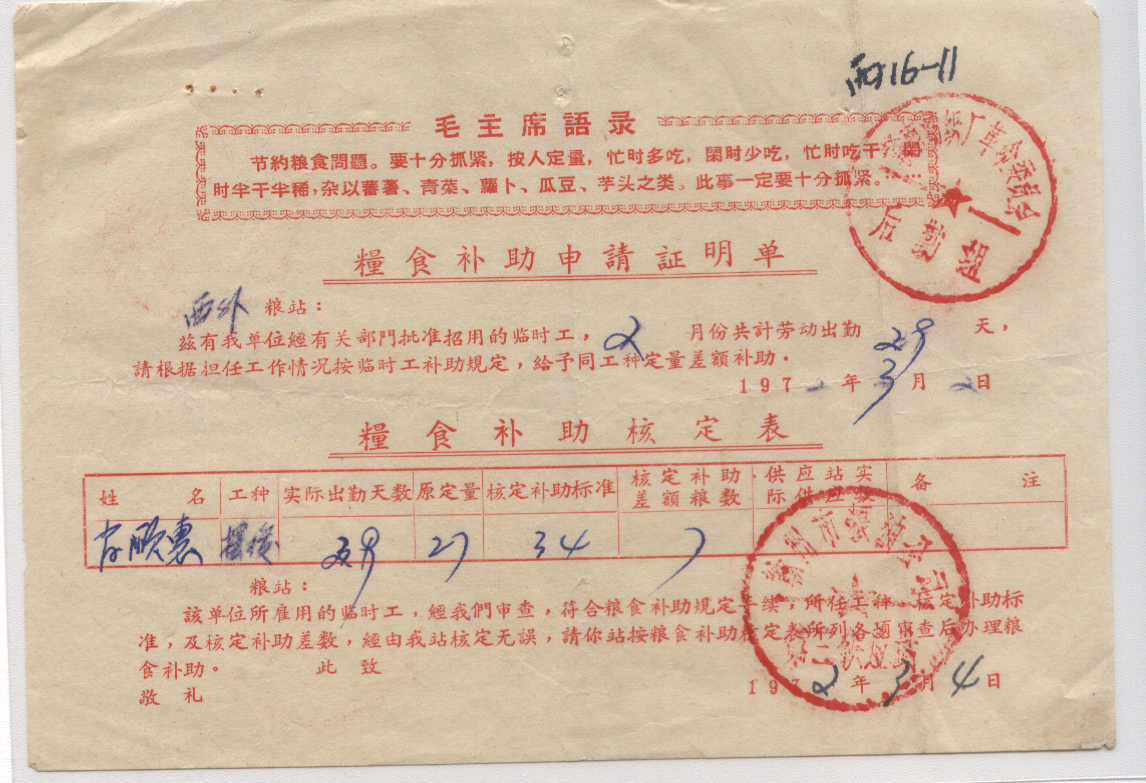 西16-11
毛主席語录
节約粮食問題。要十分抓紧，按人定量，忙时多吃，閑时少吃，忙时吃干，閑
时半干半稀，杂以蕃薯、青菜、蘿卜、瓜豆、芋头之类。此事一定要十分抓紧。
厂革命委員会
后勤組
糧食补助申請証明单
西外 粮站：
茲有我单位經有关部門批准招用的临时工， 2 月份共計劳动出勤 29 天，
請根据担任工作情况按临时工补助規定，給予同工种定量差額补助。
1972年3月2日
糧食补助核定表
姓名 工种 实际出勤天数 原定量 核定补助标准 核定补助差額粮数 供应站实际供应数 备注
顺惠 29 27 34 7
粮站：
該单位所雇用的临时工，經我們审查，符合粮食补助規定手续，所任工种、核定补助标
准，及核定补助差数，經由我站核定无誤，請你站按粮食补助核定表所列各項审查后办理粮
食补助。 此致
敬礼
1972年3月4日
市糧站公司